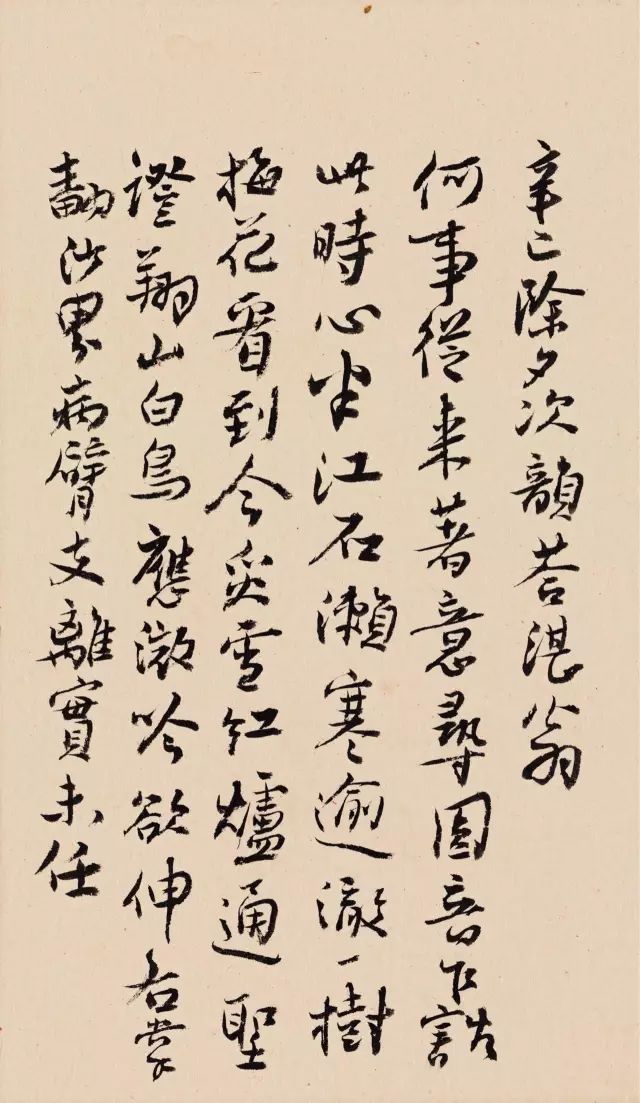 辛巳除夕次韻答湛翁
何事從來著意尋圓音乍豁
此時心半江石瀨寒逾激一樹
梅花看到今炎雪紅爐通聖
證翔山白鳥應微吟欲伸右掌
翻沙界病臂支離實未任